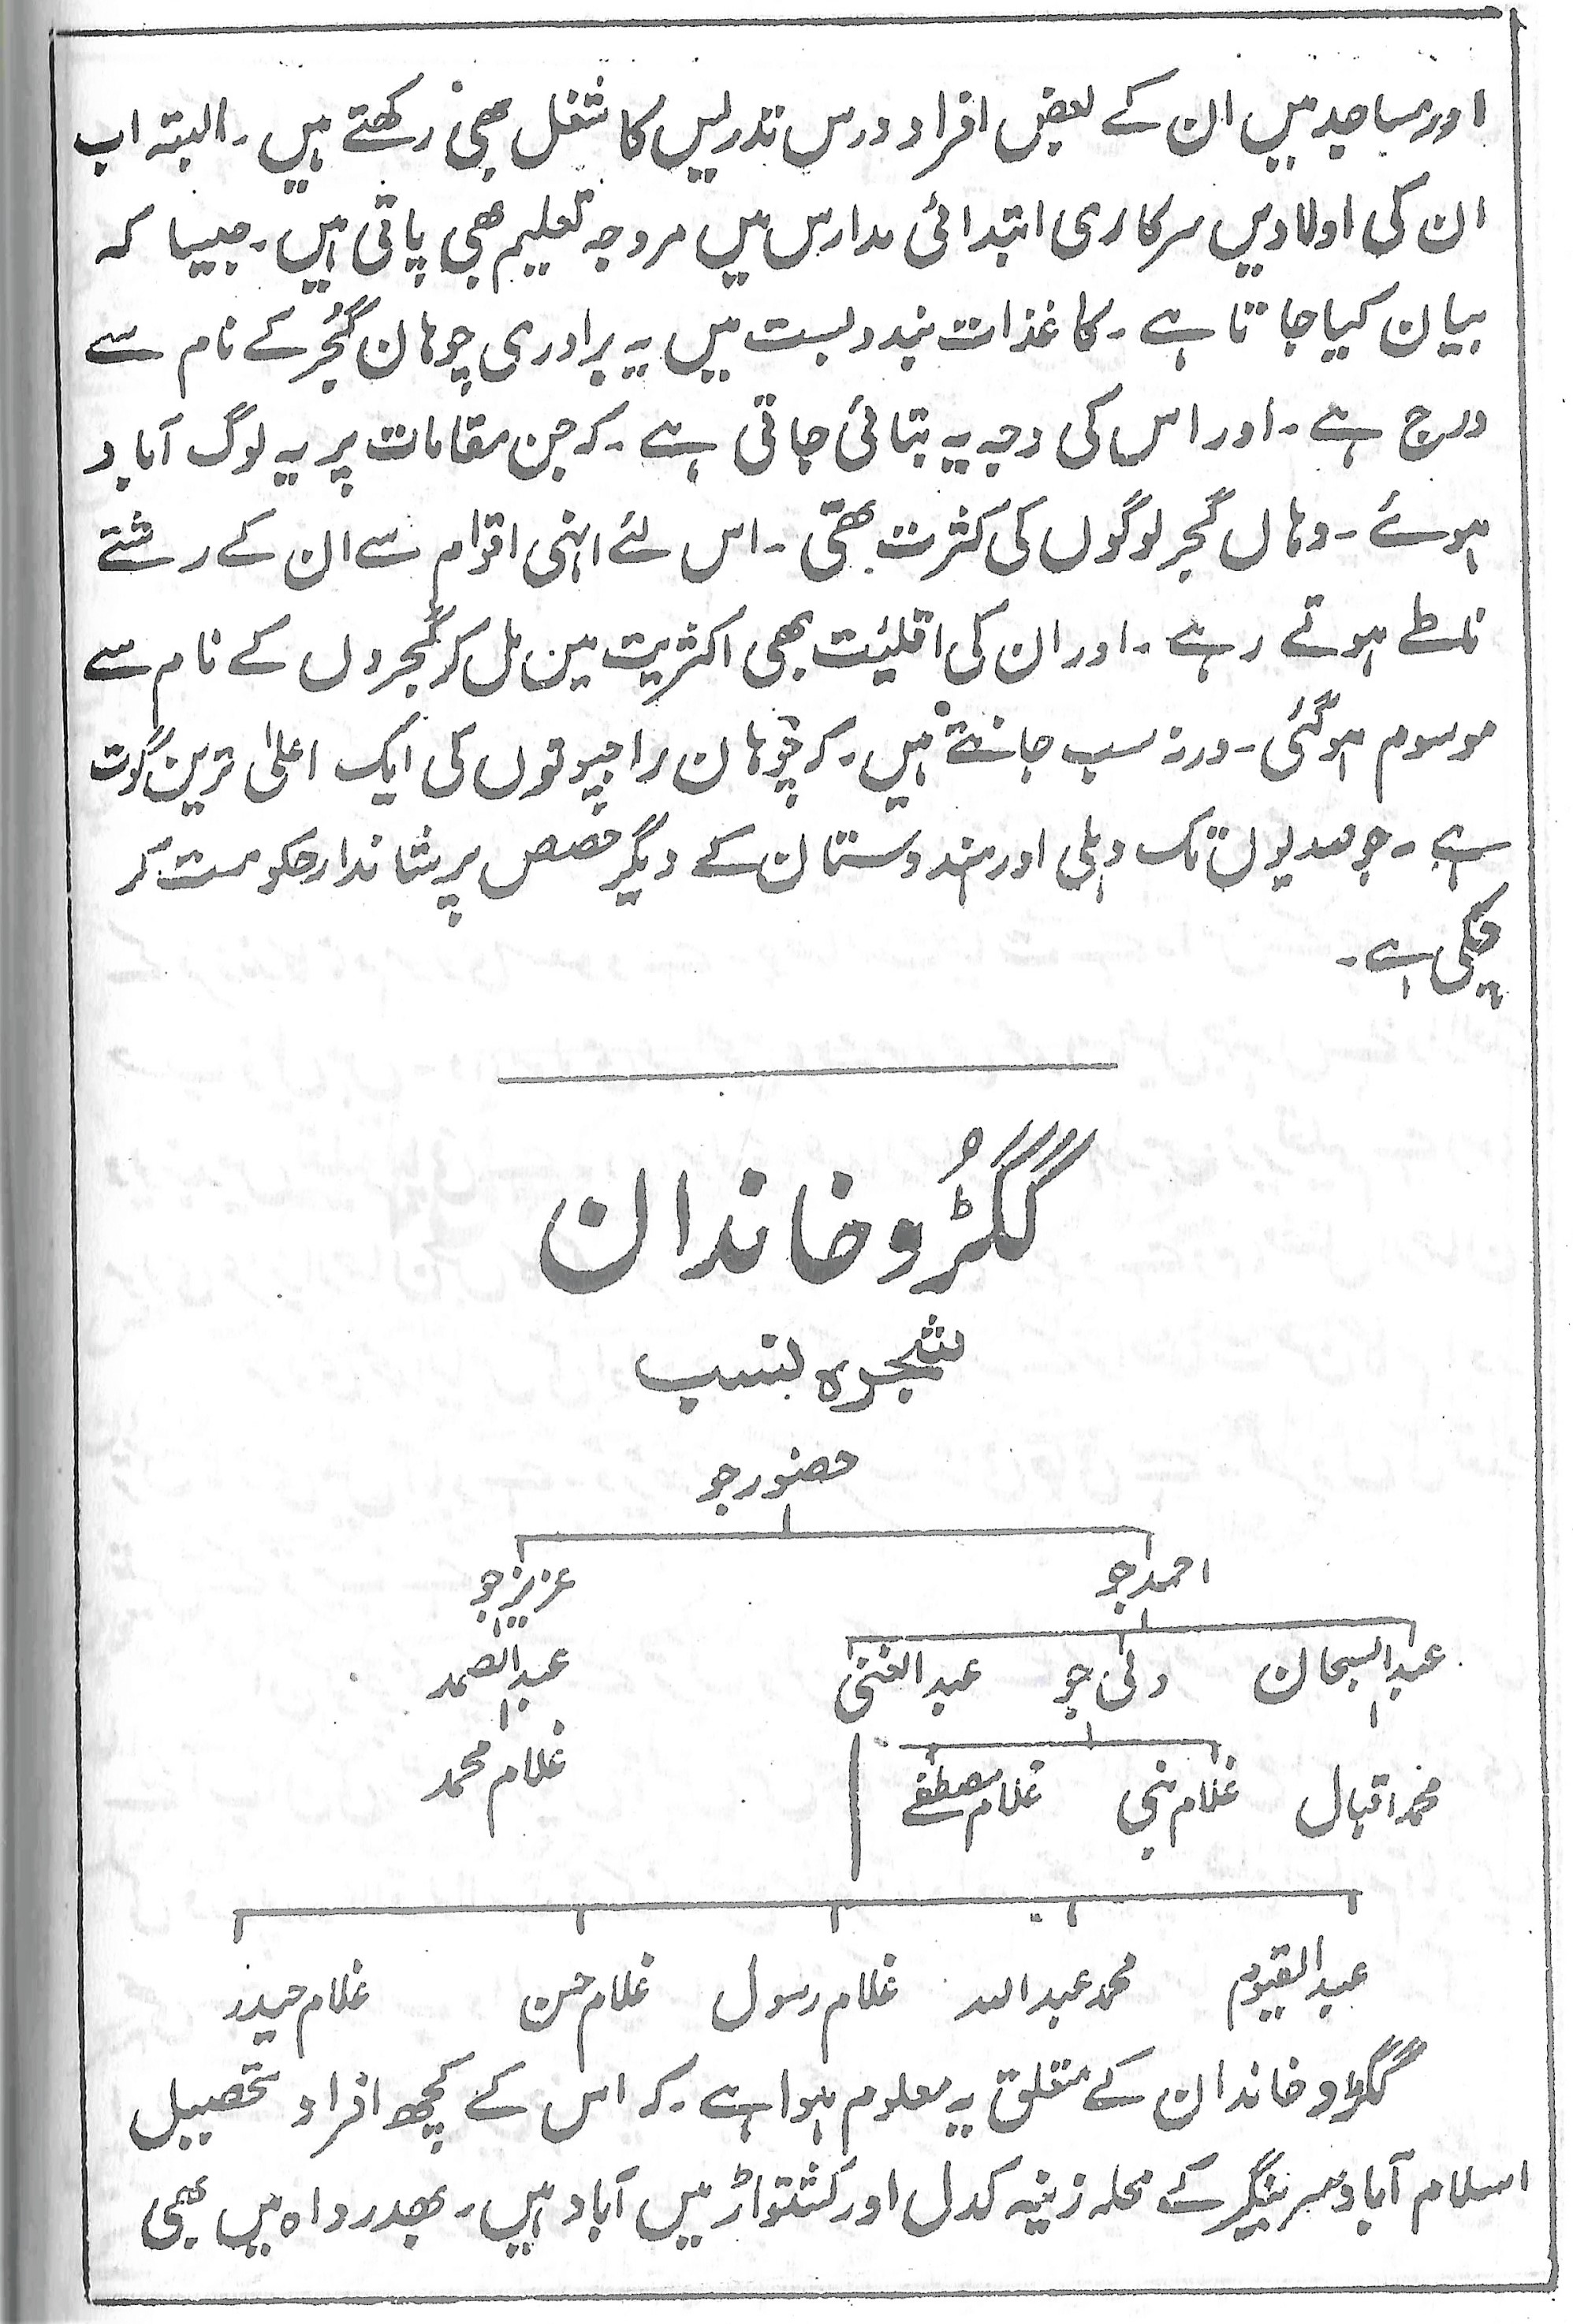 اور مساجد میں ان کے بعض افراد درس تدریس کا شغل بھی رکھتے ہیں۔ البتہ اب
ان کی اولادیں سرکاری ابتدائی مدارس میں مروجہ تعلیم بھی پاتی ہیں۔ جیسا کہ
بیان کیا جاتا ہے۔ کاغذات بندوبست میں یہ برادری چوہان گُجر کے نام سے
درج ہے۔ اور اس کی وجہ یہ بتائی جاتی ہے۔ کہ جن مقامات پر یہ لوگ آباد
ہوئے۔ وہاں گجر لوگوں کی کثرت تھی۔ اس لئے انہی اقوام سے ان کے رشتے
ناطے ہوتے رہے۔ اور ان کی اقلیّت بھی اکثریت میں مل کر گُجروں کے نام سے
موسوم ہوگئی۔ ورنہ سب جانتے ہیں۔ کہ چوہان راجپوتوں کی ایک اعلیٰ ترین گوت
ہے۔ جو صدیوں تک دہلی اور ہندوستان کے دیگر حصص پر شاندار حکومت کر
چکی ہے۔
گگڑُو خاندان
شجرہ نسب
حضور جو
احمد جو عزیز جو
عبدالسبحان ولی جو عبدالغنی عبدالصمد
محمد اقبال غلام نبی غلام مصطفےٰ غلام محمد
عبدالقیوم محمد عبداللہ غلام رسول غلام حسن غلام حیدر
گگڑو خاندان کے متعلق یہ معلوم ہوا ہے۔ کہ اس کے کچھ افراد تحصیل
اسلام آباد سرینگر کے محلہ زینہ کدل اور کشتواڑ میں آباد ہیں۔ بھدرواہ میں بھی